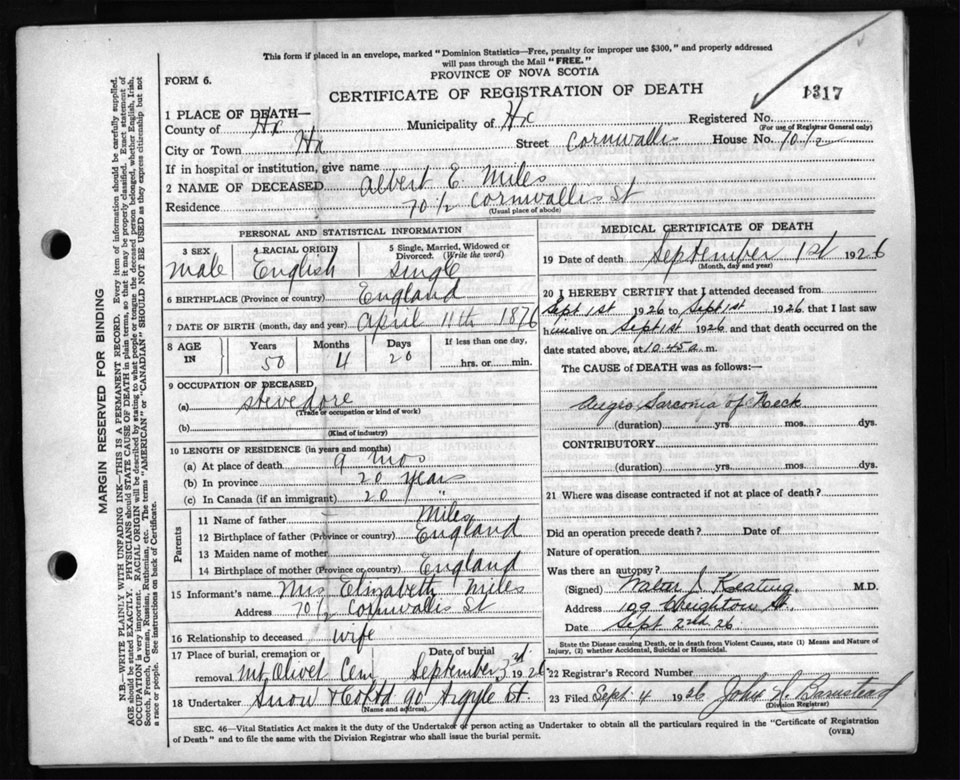 This form if placed in an envelope, marked "Dominion Statistics—Free, penalty for improper use $300," and properly addressed
will pass through the Mail "FREE."
PROVINCE OF NOVA SCOTIA
FORM 6.
CERTIFICATE OF REGISTRATION OF DEATH
1317
1 PLACE OF DEATH—
County of Hx Municipality of Hx Registered No.
(For use of Registrar General only)
City or Town Hx Street Cornwallis House No. 70½
If in hospital or institution, give name
2 NAME OF DECEASED Albert E. Miles
Residence 70½ Cornwallis St
(Usual place of abode)
PERSONAL AND STATISTICAL INFORMATION
3 SEX 4 RACIAL ORIGIN 5 Single, Married, Widowed or
Divorced. (Write the word)
Male English Single
6 BIRTHPLACE (Province or country) England
7 DATE OF BIRTH (month, day and year) April 11th 1876
8 AGE IN Years Months Days If less than one day,
50 4 20 hrs. or min.
9 OCCUPATION OF DECEASED
(a) stevedore
(Trade or occupation or kind of work)
(b)
(Kind of industry)
10 LENGTH OF RESIDENCE (in years and months)
(a) At place of death 9 mos
(b) In province 20 years
(c) In Canada (if an immigrant) 20 "
Parents
11 Name of father Miles
12 Birthplace of father (Province or country) England
13 Maiden name of mother
14 Birthplace of mother (Province or country) England
15 Informant's name Mrs Elizabeth Miles
Address 70½ Cornwallis St
16 Relationship to deceased wife
17 Place of burial, cremation or Date of burial
removal Mt Olivet Cem September 3rd 1926
18 Undertaker Snow & Co Ltd 90 Argyle St.
(Name and address)
MEDICAL CERTIFICATE OF DEATH
19 Date of death September 1st 1926
(Month, day and year)
20 I HEREBY CERTIFY that I attended deceased from
Sept 1st 1926 to Sept 1st 1926 that I last saw
him alive on Sept 1st 1926 and that death occurred on
the date stated above, at 10.45 a. m.
The CAUSE of DEATH was as follows:—
Angio Sarcoma of Neck
(duration) yrs. mos. dys.
CONTRIBUTORY
(duration) yrs. mos. dys.
21 Where was disease contracted if not at place of death?
Did an operation precede death? Date of
Nature of operation
Was there an autopsy?
(Signed) Walter J. Keating, M.D.
Address 109 Creighton St.
Date Sept 2nd 26
State the Disease causing Death, or in death from Violent Causes, state (1) Means and Nature of
Injury, (2) whether Accidental, Suicidal or Homicidal.
22 Registrar's Record Number
23 Filed Sept 4 1926 John A. Barnstead
(Division Registrar)
SEC. 46—Vital Statistics Act makes it the duty of the Undertaker or person acting as Undertaker to obtain all the particulars required in the "Certificate of Registration
of Death" and to file the same with the Division Registrar who shall issue the burial permit. (OVER)
MARGIN RESERVED FOR BINDING
N.B.—WRITE PLAINLY WITH UNFADING INK—THIS IS A PERMANENT RECORD. Every item of information should be carefully supplied.
AGE should be stated EXACTLY. PHYSICIANS should STATE CAUSE OF DEATH in plain terms, so that it may be properly classified. Exact statement of
OCCUPATION is very important. RACIAL ORIGIN will be described by stating to what people or tongue the deceased person belonged, whether English, Irish,
Scotch, French, German, Russian, Ruthenian, etc. The terms "AMERICAN" or "CANADIAN" SHOULD NOT BE USED as they express citizenship but not
a race or people. See instructions on back of Certificate.